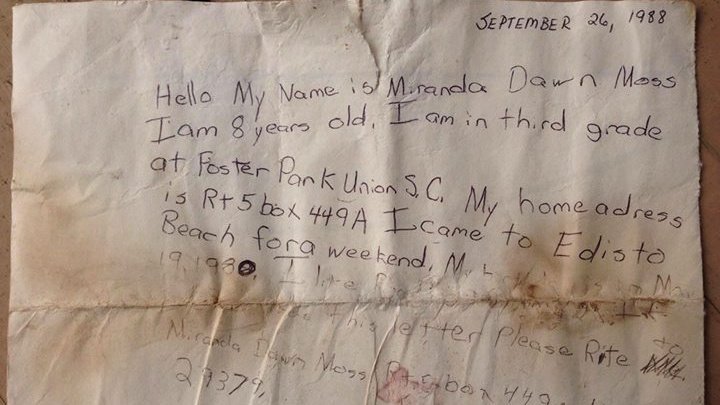 SEPTEMBER 26, 1988
Hello My Name is Miranda Dawn Moss
I am 8 years old. I am in third grade
at Foster Park Union S.C. My home adress
is Rt 5 box 449A I came to Edisto
Beach for a weekend. My
19, 1980. I like
this letter Please Rite to
Miranda Dawn Moss Rt 5 box 449
29379,